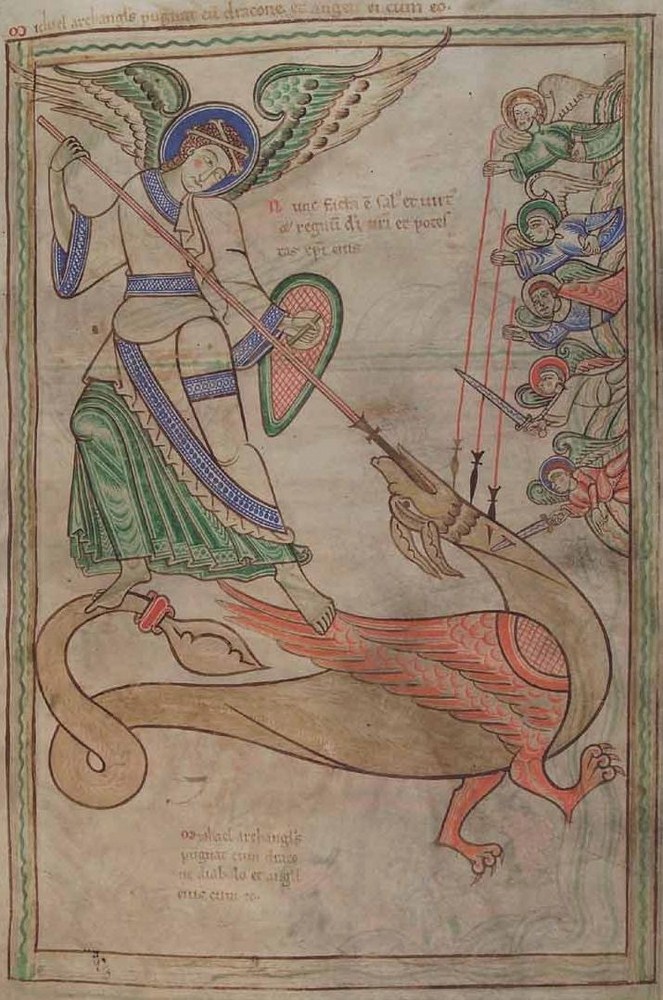 Michael archangl's pugnat cū dracone. et angeli ei cum eo.
Nunc facta ē sal' et uirt'
& regnū dī nr̄i et potes
tas xp̄i eius
Michael archangl's
pugnat cum draco
ne diabolo et angli
eius cum eo.